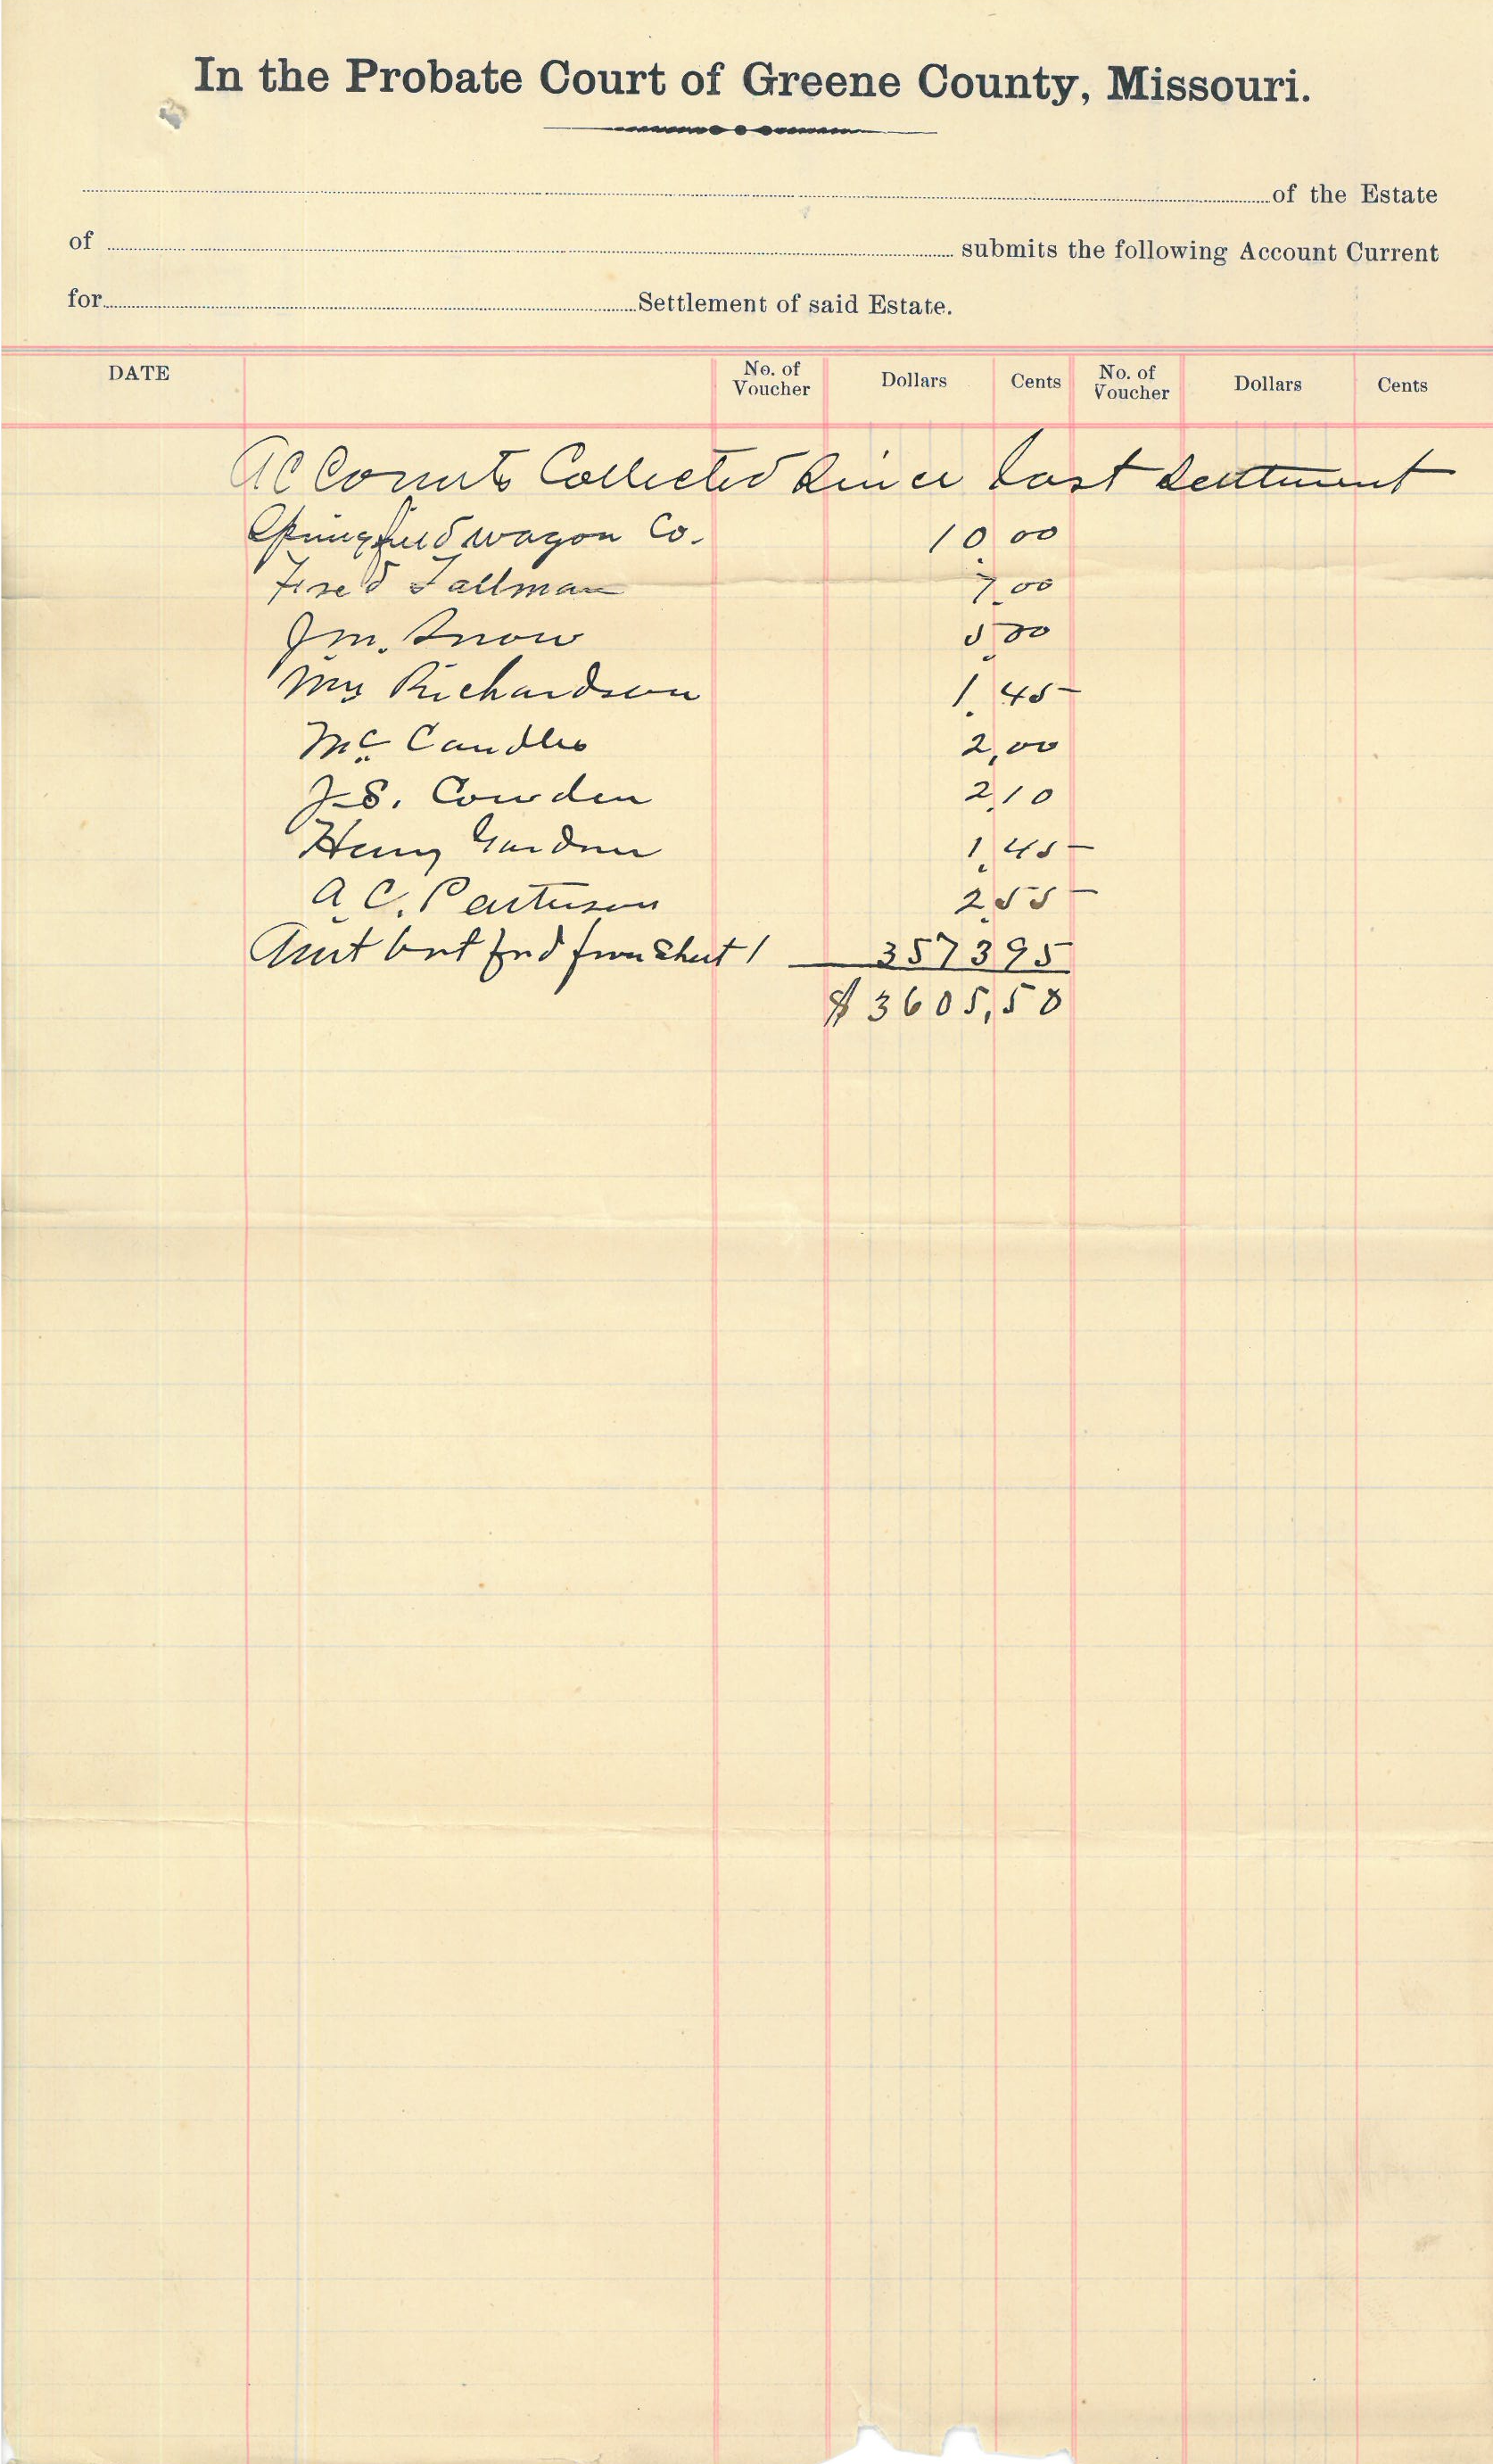 In the Probate Court of Greene County, Missouri.
of the Estate
of submits the following Account Current
for Settlement of said Estate.
DATE No. of Voucher Dollars Cents No. of Voucher Dollars Cents
Accounts Collected Since last Settlment
Springfield wagon Co. 10.00
Fred Tallman 7.00
J.m. Snow 5.00
Mrs Richardson 1.45
Mc Candles 2,00
J.S. Cowden 2,10
Henry Gardner 1,45
A. C. 2.55
Amt brt frd from Sheet 1 3573 95
$3605,50